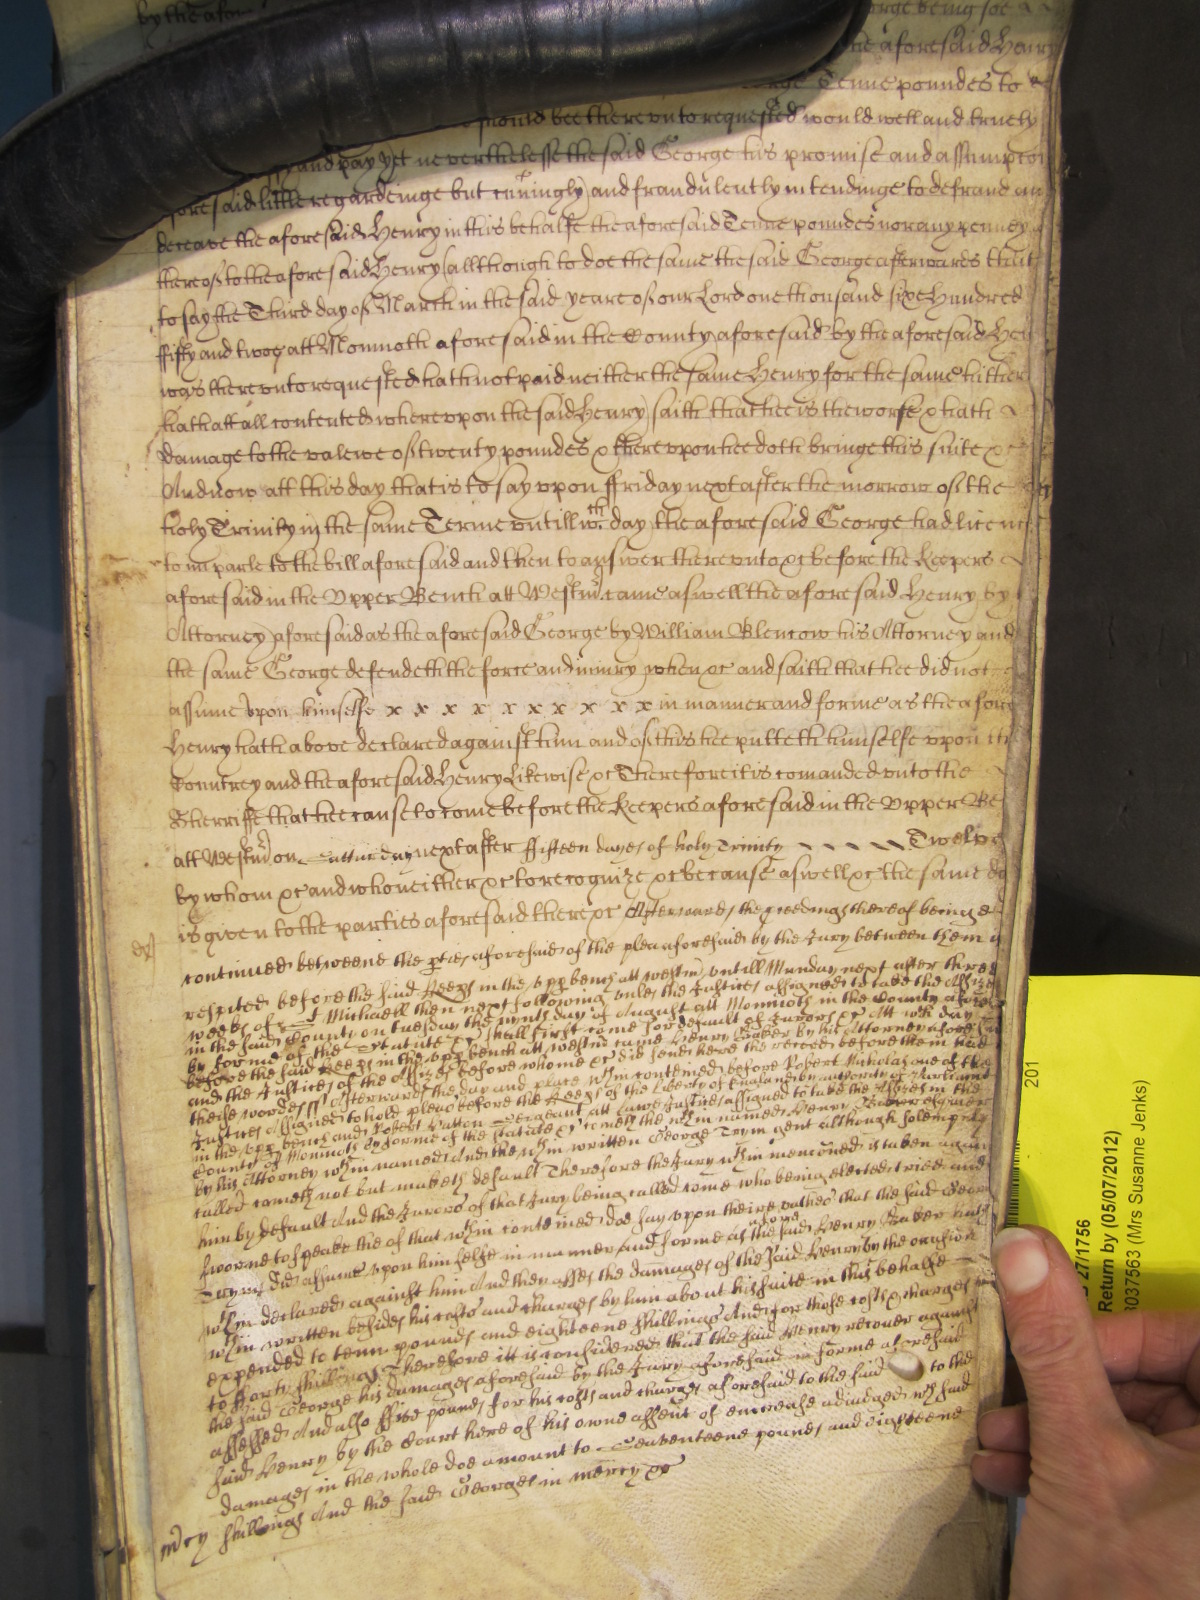 by the afore
orge being soe
the aforesaid Henry
orge Tenne poundes to
should bee there vnto requested would well and truely
and pay yet neverthelesse the said George his promise and assumpcon
aforesaid little regardeinge but cuningly and fraudulently intendinge to defraud an
deceave the aforesaid Henry in this behalfe the aforesaid Tenne poundes nor any penney
thereof to the aforesaid Henry (allthough to doe the same the said George afterwards that
to say the Third day of March in the said yeare of our Lord one thousand sixe Hundred
fifty and twoe att Monmoth aforesaid in the County aforesaid by the aforesaid Hen
was there vnto requested hath not paid neither the same Henry for the same hither
hath att all contented wherevpon the said Henry saith that hee is the worse & hath
damage to the valewe of twenty poundes & therevpon hee doth bringe this suite &c
And now att this day that is to say vpon ffriday next after the morrow of the
holy Trinity in the same Terme vntill wch day the aforesaid George had licen
to imparle to the bill aforesaid and then to answer there vnto &c before the Keepers
aforesaid in the Vpper Bench att Westmr came aswell the aforesaid Henry by
Attorney aforesaid as the aforesaid George by William Blencow his Attorney and
the same George defendeth the force and iniury when &c and saith that hee did not
assume vpon himselfe x x x x x x x x x x in manner and forme as the afore
Henry hath above declared against him and of this hee putteth himselfe vpon the
Countrey and the aforesaid Henry likewise &c Therefore it is comanded vnto the
Sherriffe that hee cause to come before the Keepers aforesaid in the Vpper Be
att Westmr on Satturday next after fifteen dayes of holy Trinity Twelve
by whom &c and who neither &c to recognize &c because aswell &c the same da
is given to the parties aforesaid there &c Afterwards the pceedings thereof beinge
continued betweene the pties aforesaid of the plea aforesaid by the Jury between them
respited before the said Keeps in the vpp bench att westmr vntill Munday next after three
weekes of St Michaell then next following vnles the Justices assigned to take the Assizes
in the said County on tuesday the nynth day of August att Monmoth in the County afore
by forme of the Statute &c shall first come for default of Jurors &c Att wch day
before the said Keeps in the vpp bench att westmr came Henry Baker by his Attorney afore
and the Justices of the Assizes before whome &c did send here the record before them had
theise wordes ss Afterwards the day and place wthin contened before Robert Nicholas one of the
Justices Assigned to hold pleas before the Keeps of the liberty of England by authority of Parliamt
in the vpp bench and Robert Hatton Sergeant att Lawe Justices assigned to take the Assizes in the
County of Monmoth by forme of the Statute &c cometh the wthin named Henry Baker
by his Attorney wthin named And the wthin written George Gwym gent although solemply
called cometh not but maketh default Therefore the Jury wthin menconed is taken again
him by default And the Jurors of that Jury being called come who being elected tried and
sworne to speake the of that wthin conteined doe say vpon theire oathes that the said Geor
Gwym did assume vpon himselfe in manner and forme as the said Henry Baker hath
above
wthin declared against him And they asses the damages of the said Henry by the occasion
wthin written besides his costs and charges by him about his suite in this behalfe
expended to tenn pounds and eighteene shillings And for those costs & charges
to forty shillings Therefore itt is considered that the said Henry recover against
the said George his damages aforesaid by the Jury aforesaid in forme aforesaid
assessed And also ffive pounds for his costs and charges aforesaid to the said
said Henry by the Court here of his owne assent of encrease adiudged wch said to the
damages in the whole doe amount to Seaventeene pounds and eighteene
mrcy shillings And the said George in mercy &c
201
27/1756
Return by (05/07/2012)
3037563 (Mrs Susanne Jenks)